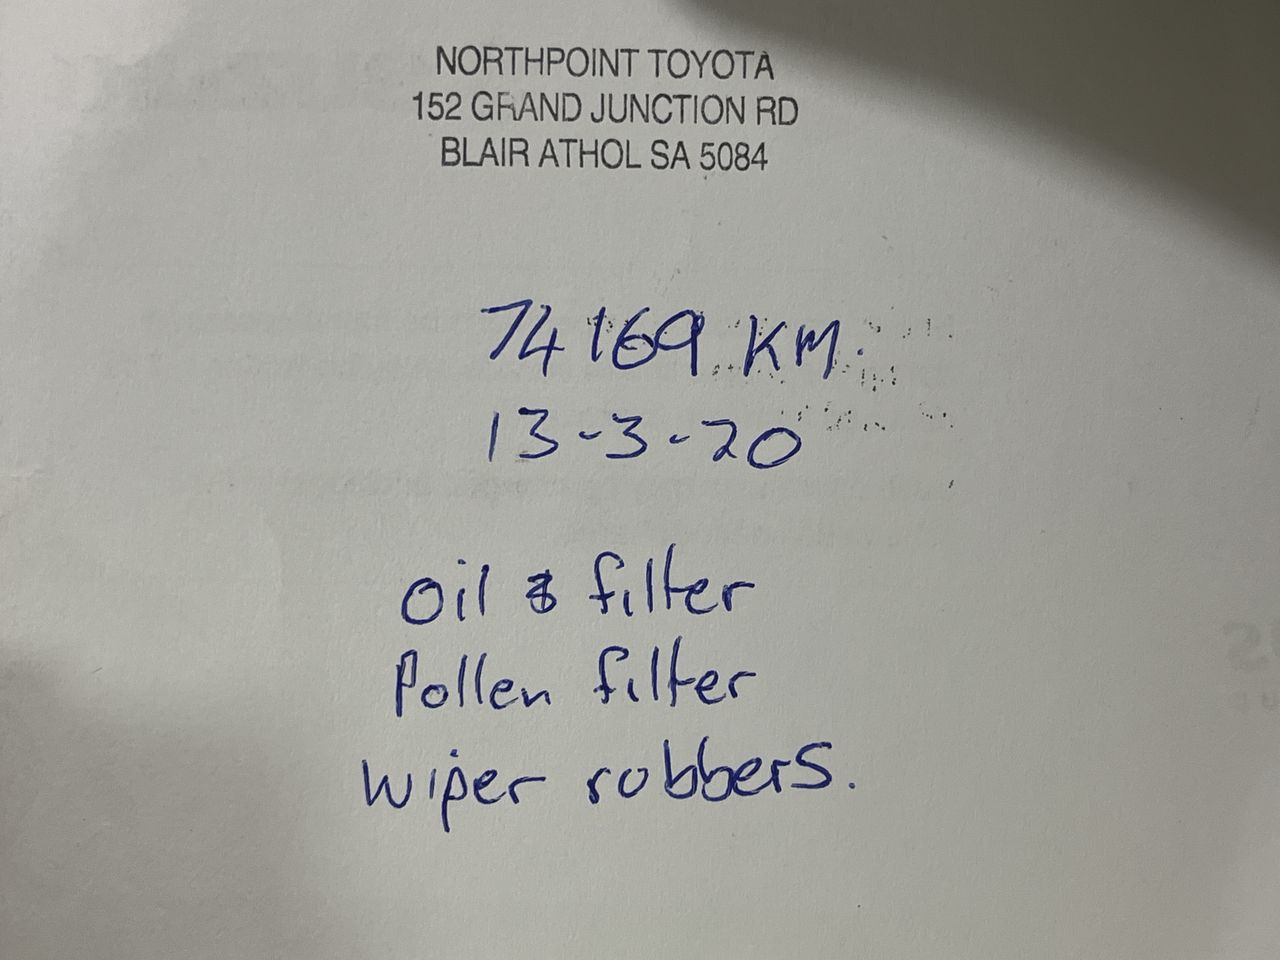 NORTHPOINT TOYOTA
152 GRAND JUNCTION RD
BLAIR ATHOL SA 5084
74169 KM.
13-3-20
Oil & filter
Pollen filter
Wiper rubbers.